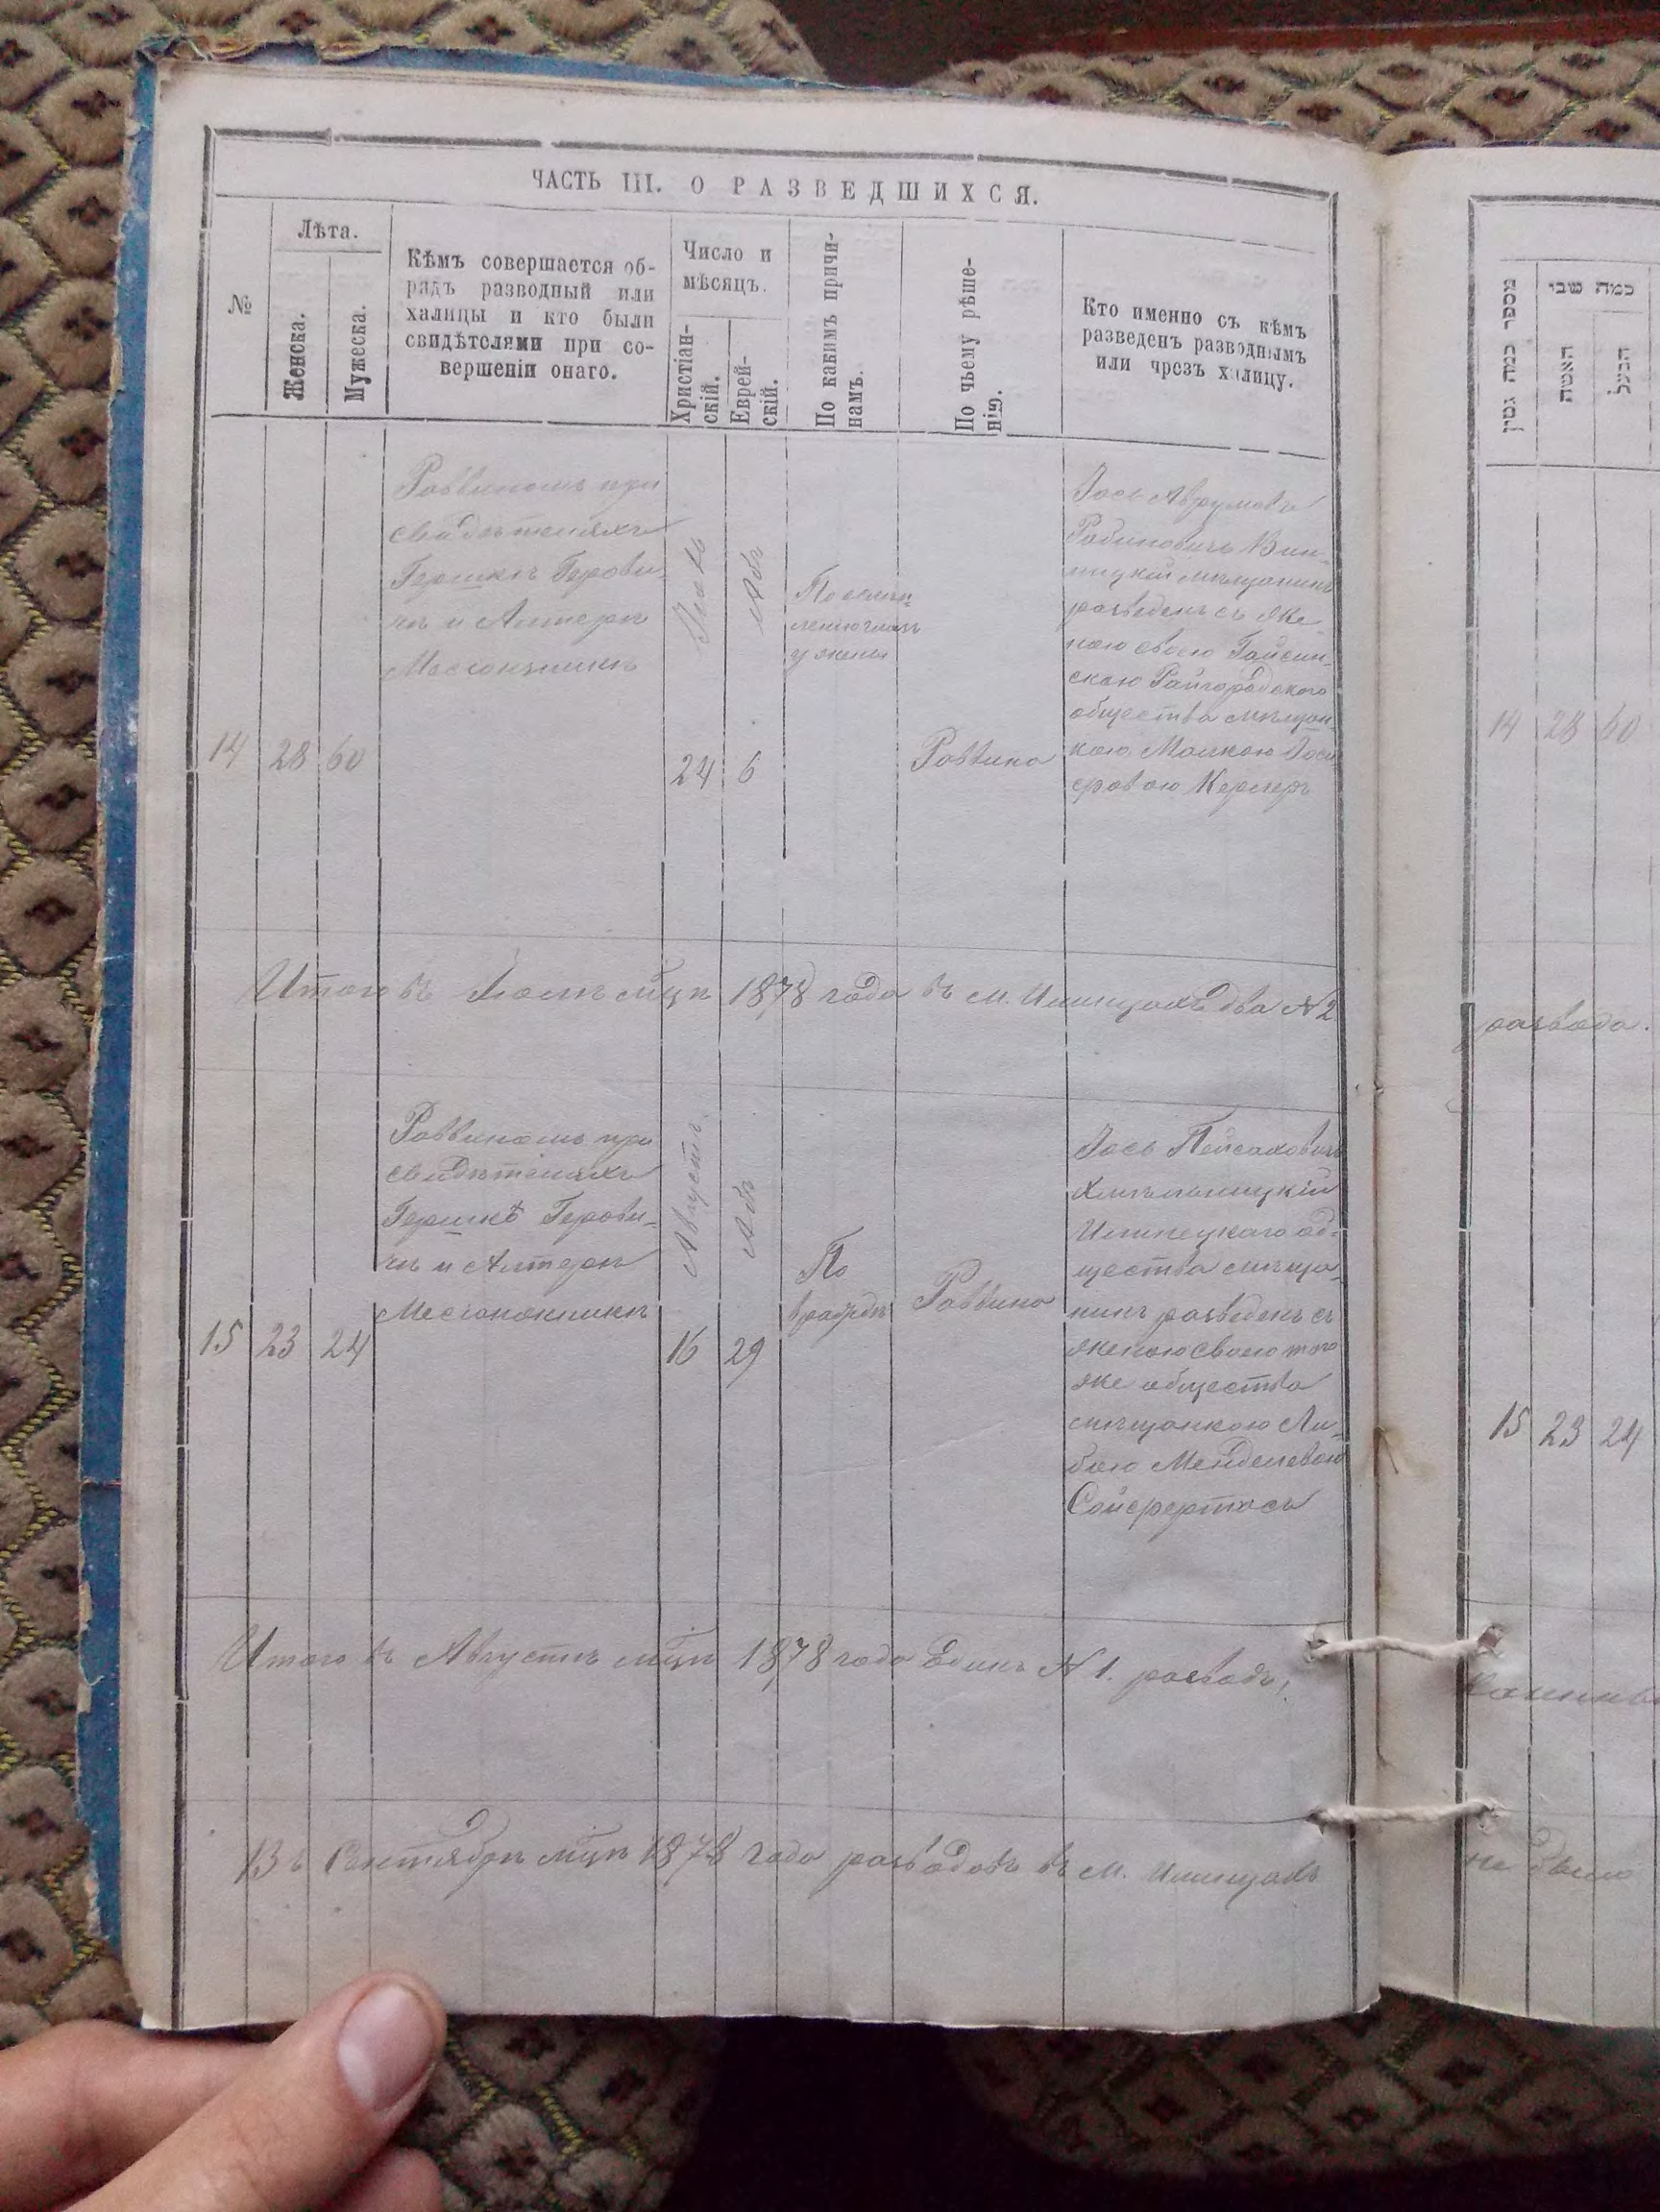 ЧАСТЬ III. О РАЗВЕДШИХСЯ.
№
Лѣта.
Женска.
Мужеска.
Кѣмъ совершается об-
рядъ разводный или
халицы и кто были
свидѣтелями при со-
вершеніи онаго.
Число и
мѣсяцъ.
Христіан-
скій.
Еврей-
скій.
По какимъ причи-
намъ.
По чьему рѣше-
нію.
Кто именно съ кѣмъ
разведенъ разводнымъ
или чрезъ халицу.
14
28
60
Раввиномъ при
свидѣтеляхъ
Гершкѣ Герови-
чѣ и Алтерѣ
Июль
24
Абъ
6
у жены
Раввина
Іось Аврумовъ
Рабиновичъ Вин-
ницкій мѣщанинъ
разведенъ съ же-
ною своею Гайсин-
скою Райгородского
общества мѣщан
кою Малкою Іоси
еровою Кернеръ
Итого въ Іюлѣ мцѣ 1878 года въ м. Илинцахъ два № 2
15
23
24
Раввиномъ при
свидѣтеляхъ
Гершкѣ Герови-
чѣ и Алтерѣ
Августъ
16
Абъ
29
По
Раввина
Іось Пейсаховичъ
Хмѣльницкій
Илинецкаго об-
щества мѣща-
нинъ разведенъ съ
женою своею того
же общества
мѣщанкою Ли-
бою Менделевою
Итого въ Августѣ мцѣ 1878 года одинъ № 1. разводъ.
Въ Сентябрѣ мцѣ 1878 года разводовъ въ м. Илинцахъ
מספר כמה גטין
כמה שני
האשה
הבעל
14
28
60
развода.
15
23
24
не было